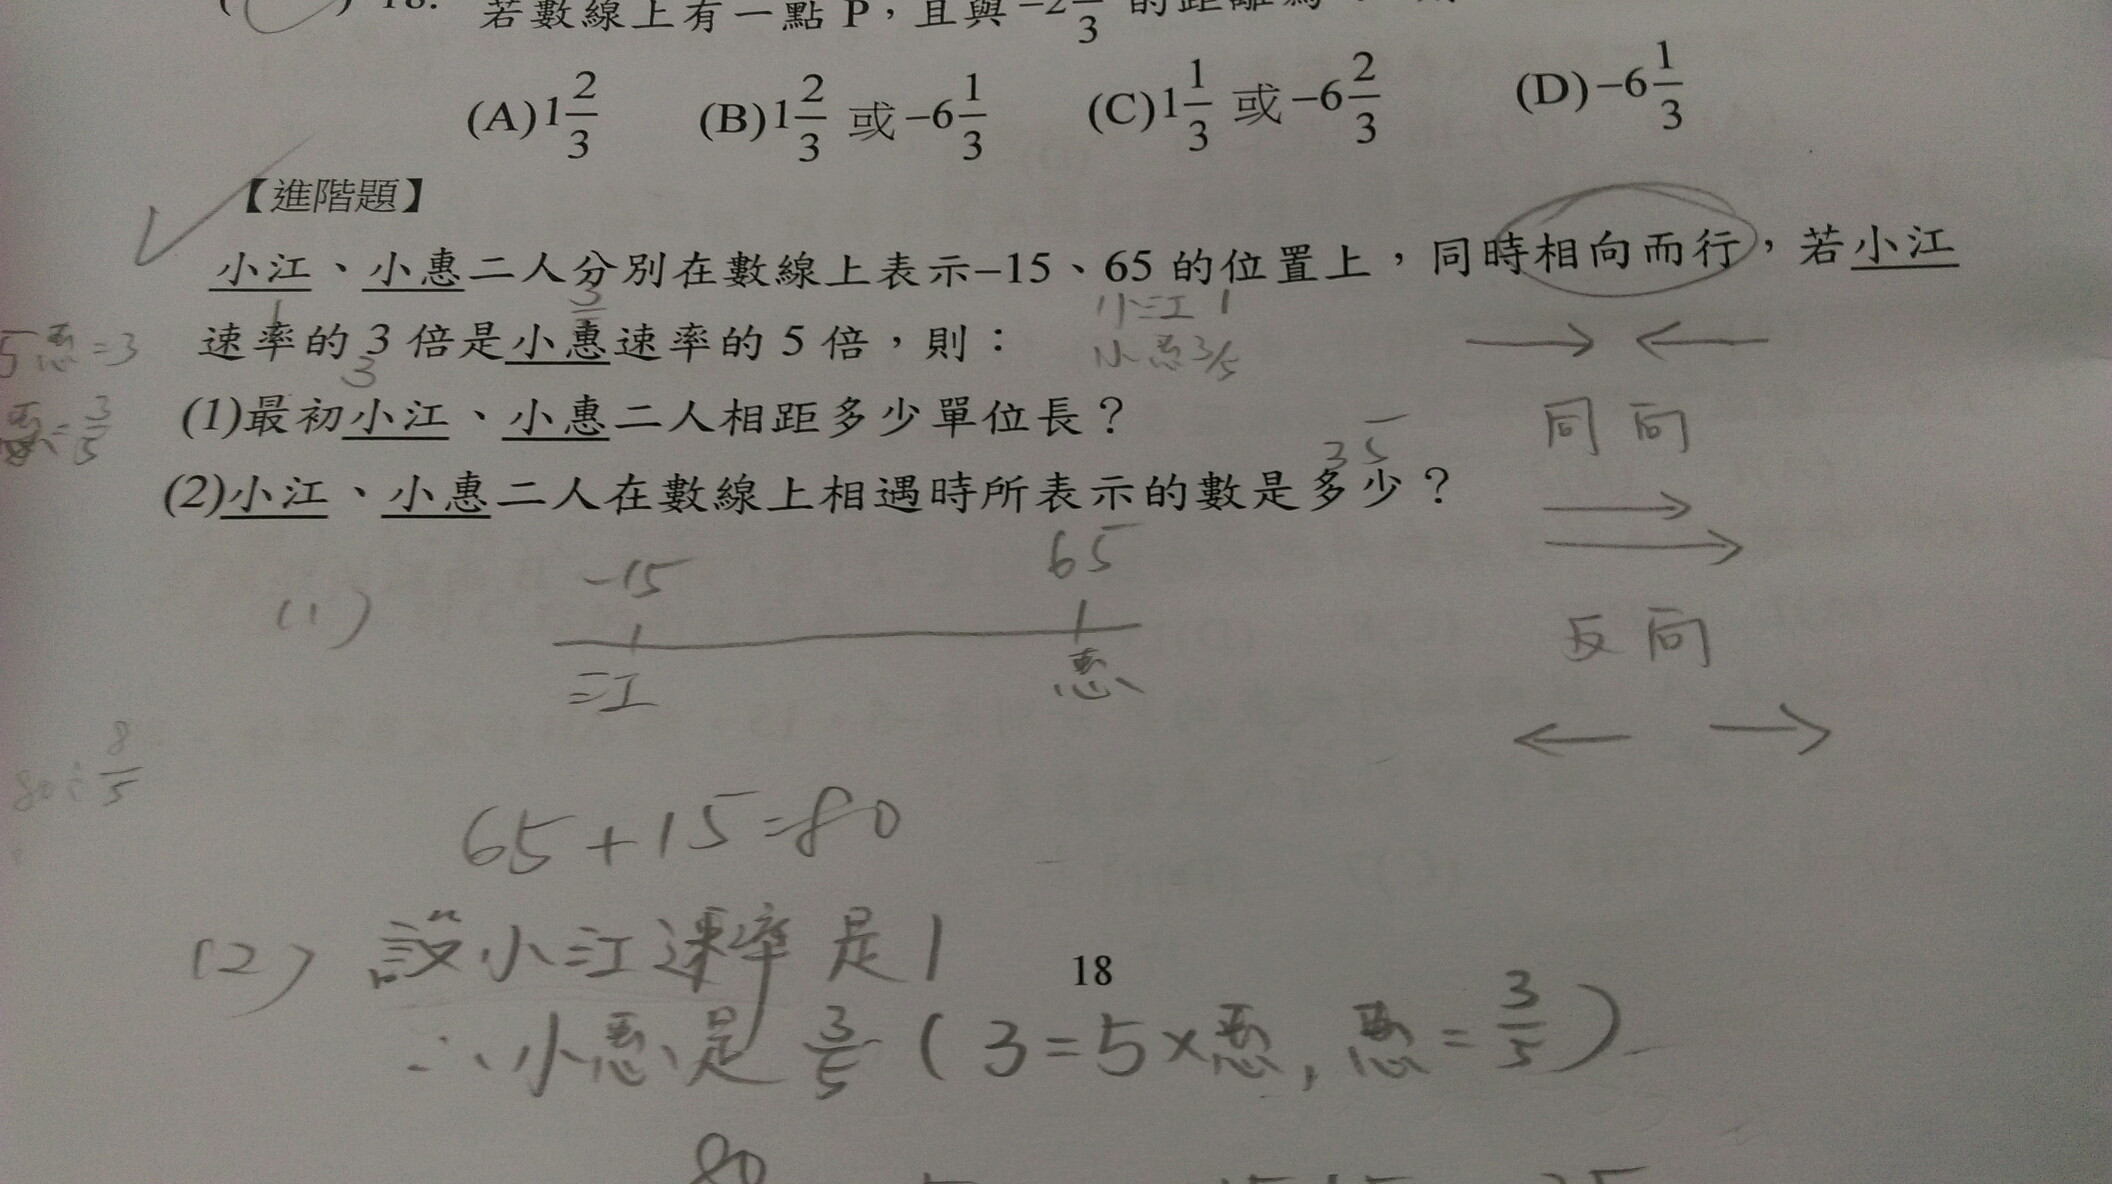 18. 若數線上有一點 P，且與 -2 1/3 的距離為
(A)1 2/3 (B)1 2/3 或 -6 1/3 (C)1 1/3 或 -6 2/3 (D) -6 1/3
【進階題】
小江、小惠二人分別在數線上表示-15、65 的位置上，同時相向而行，若小江
1 3/5 小江 1
5惠=3 速率的 3 倍是小惠速率的 5 倍，則：
3 小惠 3/5
惠=3/5 (1)最初小江、小惠二人相距多少單位長？
同向
35
(2)小江、小惠二人在數線上相遇時所表示的數是多少？
(1) -15 65
江 惠
反向
80÷8/5
65+15=80
(2) 設小江速率是1
18
∴小惠是 3/5 (3=5×惠, 惠=3/5)
80